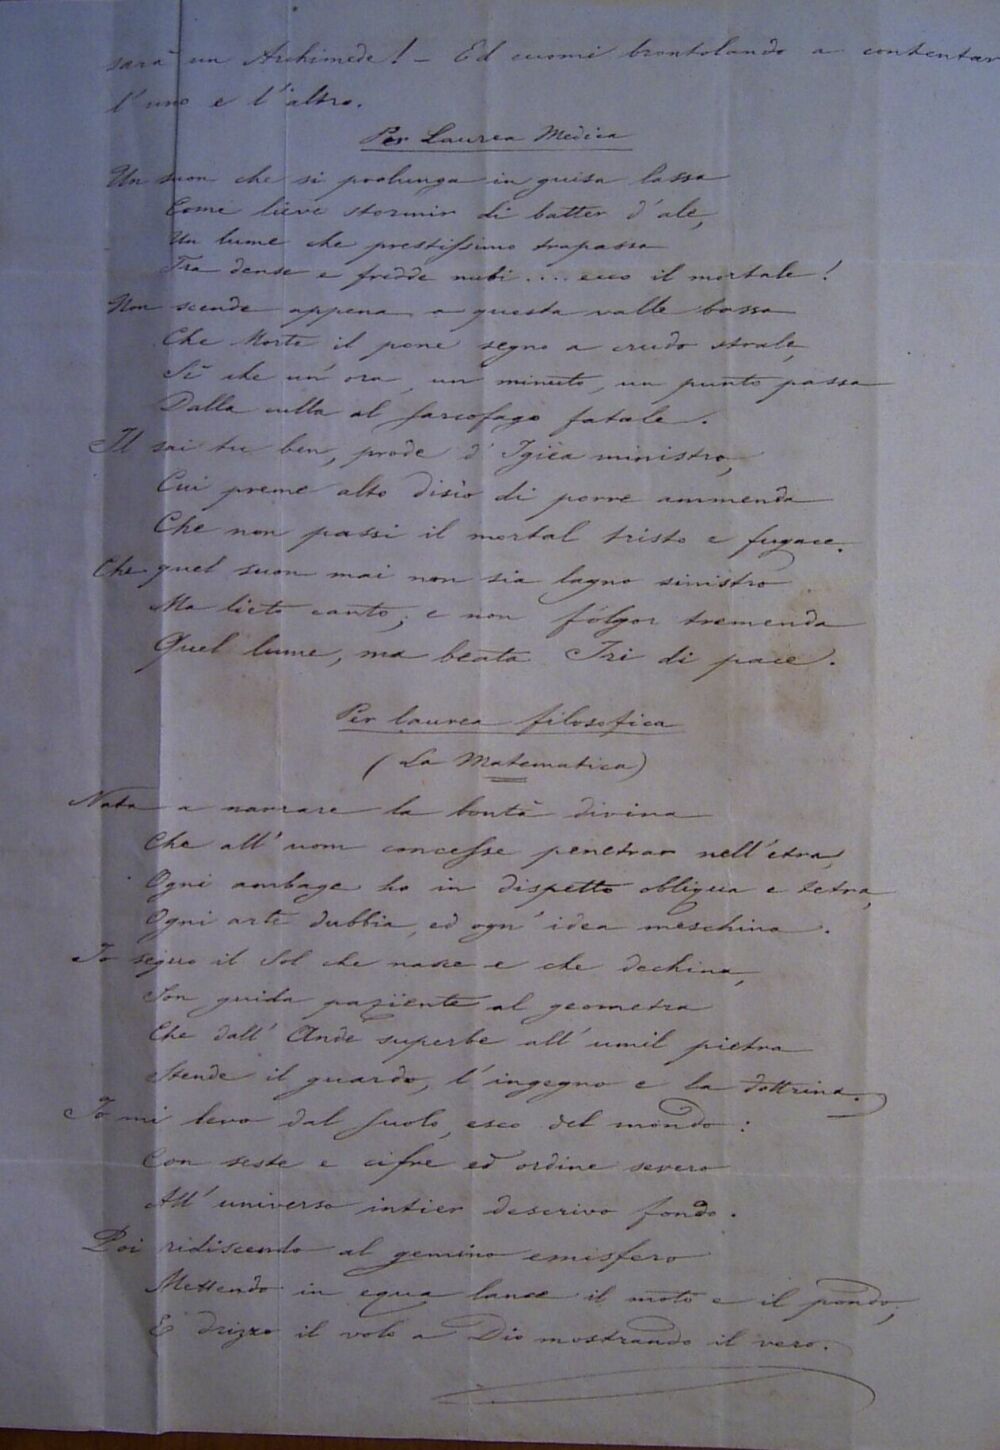 sarà un Archimede! - Ed eccomi brontolando a contentar
l'uno e l'altro.
Per Laurea Medica
Un suon che si prolunga in guisa lassa
Come lieve stormir di batter d'ale,
Un lume che prestissimo trapassa
Tra dense e fredde nubi .... ecco il mortale!
Non scende appena a questa valle bassa
Che Morte il pone segno a crudo strale,
Sì che un' ora, un minuto, un punto passa
Dalla culla al sarcofago fatale.
Il sai tu ben, prode d'Igïea ministro,
Cui preme alto disìo di porre ammenda
Che non passi il mortal tristo e fugace.
Che quel suon mai non sia lagno sinistro
Ma lieto canto, e non fólgor tremenda
Quel lume, ma beata Iri di pace.
Per laurea filosofica
(La Matematica)
Nata a narrare la bontà divina
Che all' uom concesse penetrar nell'etra,
Ogni ambage ho in dispetto obliqua e tetra,
Ogni arte dubbia, ed ogn' idea meschina.
Io seguo il Sol che nasce e che dechina,
Son guida pazïente al geometra
Che dall' Ande superbe all' umil pietra
Stende il guardo, l'ingegno e la dottrina.
Io mi levo dal suolo, esco del mondo:
Con seste e cifre ed ordine severo
All' universo intier descrivo fondo.
Poi ridiscendo al gemino emisfero
Mettendo in equa lance il moto e il pondo,
E drizzo il volo a Dio mostrando il vero.